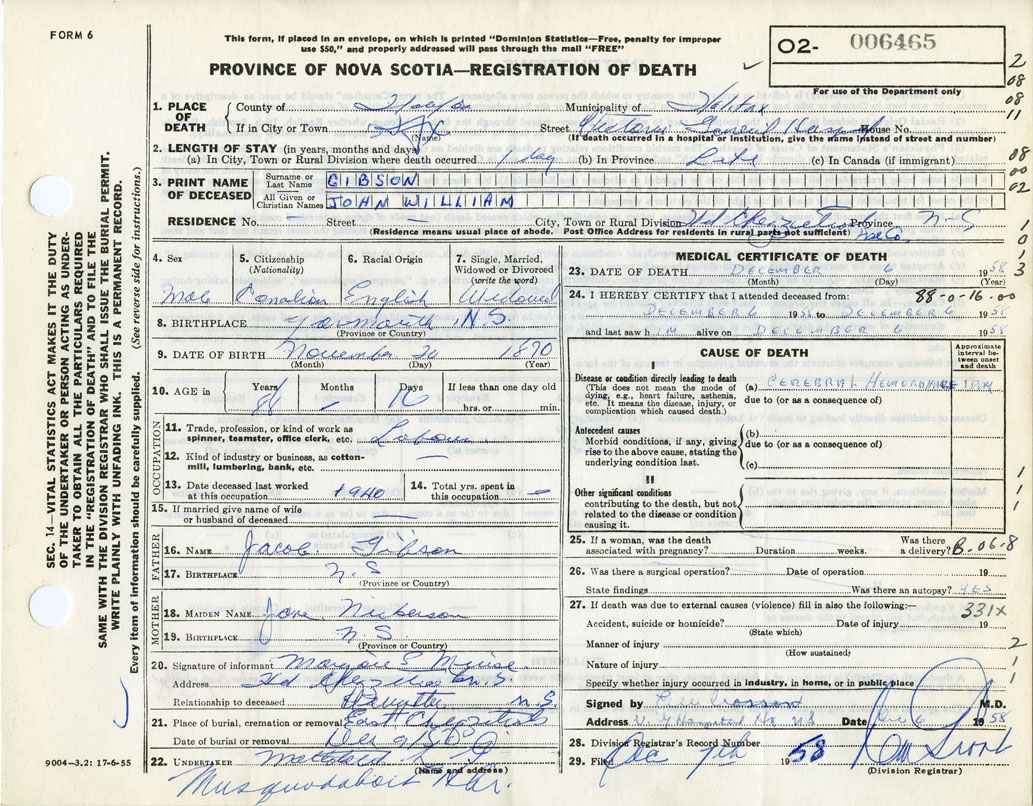 FORM 6
This form, if placed in an envelope, on which is printed "Dominion Statistics—Free, penalty for improper
use $50," and properly addressed will pass through the mail "FREE"
PROVINCE OF NOVA SCOTIA—REGISTRATION OF DEATH
02- 006465
For use of the Department only
2
08
08
11
1. PLACE OF DEATH
County of Halifax Municipality of Halifax
If in City or Town Street Victoria General Hospital House No.
(Name) (If death occurred in a hospital or institution, give the name instead of street and number)
2. LENGTH OF STAY (in years, months and days)
(a) In City, Town or Rural Division where death occurred 1 day (b) In Province Life (c) In Canada (if immigrant)
08
00
02
3. PRINT NAME OF DECEASED
Surname or Last Name GIBSON
All Given or Christian Names JOHN WILLIAM
RESIDENCE No. — Street — City, Town or Rural Division Province N-S
(Residence means usual place of abode. Post Office Address for residents in rural parts not sufficient)
4. Sex 5. Citizenship (Nationality) 6. Racial Origin 7. Single, Married, Widowed or Divorced (write the word)
Male Canadian English Widowed
8. BIRTHPLACE Yarmouth N.S.
(Province or Country)
9. DATE OF BIRTH November 20 1870
(Month) (Day) (Year)
10. AGE in Years Months Days If less than one day old
88 — 16 hrs. or min.
OCCUPATION
11. Trade, profession, or kind of work as
spinner, teamster, office clerk, etc. Labour
12. Kind of industry or business, as cotton-
mill, lumbering, bank, etc. —
13. Date deceased last worked
at this occupation 1940
14. Total yrs. spent in
this occupation
15. If married give name of wife
or husband of deceased —
FATHER
16. NAME Jacob Gibson
17. BIRTHPLACE N.S.
(Province or Country)
MOTHER
18. MAIDEN NAME Jane Nickerson
19. BIRTHPLACE N.S.
(Province or Country)
20. Signature of informant Marjorie E
Address N.S.
Relationship to deceased Daughter N.S.
21. Place of burial, cremation or removal East Chezzetcook
Date of burial or removal Dec 9
22. UNDERTAKER
(Name and address)
Musquodoboit Har.
9004—3.2: 17-6-55
SEC. 14—VITAL STATISTICS ACT MAKES IT THE DUTY
OF THE UNDERTAKER OR PERSON ACTING AS UNDER-
TAKER TO OBTAIN ALL THE PARTICULARS REQUIRED
IN THE "REGISTRATION OF DEATH" AND TO FILE THE
SAME WITH THE DIVISION REGISTRAR WHO SHALL ISSUE THE BURIAL PERMIT.
WRITE PLAINLY WITH UNFADING INK. THIS IS A PERMANENT RECORD.
Every item of information should be carefully supplied. (See reverse side for instructions.)
MEDICAL CERTIFICATE OF DEATH
23. DATE OF DEATH DECEMBER 6 1958
(Month) (Day) (Year)
24. I HEREBY CERTIFY that I attended deceased from: 88-0-16-00
DECEMBER 6 1958 to DECEMBER 6 1958
and last saw h IM alive on DECEMBER 6 1958
CAUSE OF DEATH
Approximate
interval be-
tween onset
and death
I
Disease or condition directly leading to death
(This does not mean the mode of
dying, e.g., heart failure, asthenia,
etc. It means the disease, injury, or
complication which caused death.)
(a) CEREBRAL HEMORRHAGE 1 DAY
due to (or as a consequence of)
Antecedent causes
Morbid conditions, if any, giving
rise to the above cause, stating the
underlying condition last.
(b)
due to (or as a consequence of)
(c)
II
Other significant conditions
contributing to the death, but not
related to the disease or condition
causing it.
25. If a woman, was the death
associated with pregnancy? Duration weeks. Was there
a delivery? B-06-8
26. Was there a surgical operation? Date of operation 19
State findings Was there an autopsy? YES
27. If death was due to external causes (violence) fill in also the following:— 331X
Accident, suicide or homicide? Date of injury 19
(State which)
Manner of injury
(How sustained)
2
Nature of injury
1
Specify whether injury occurred in industry, in home, or in public place
1
Signed by M.D.
Address Date Dec 6 1958
28. Division Registrar's Record Number
29. Filed Dec 7th 1958
(Division Registrar)